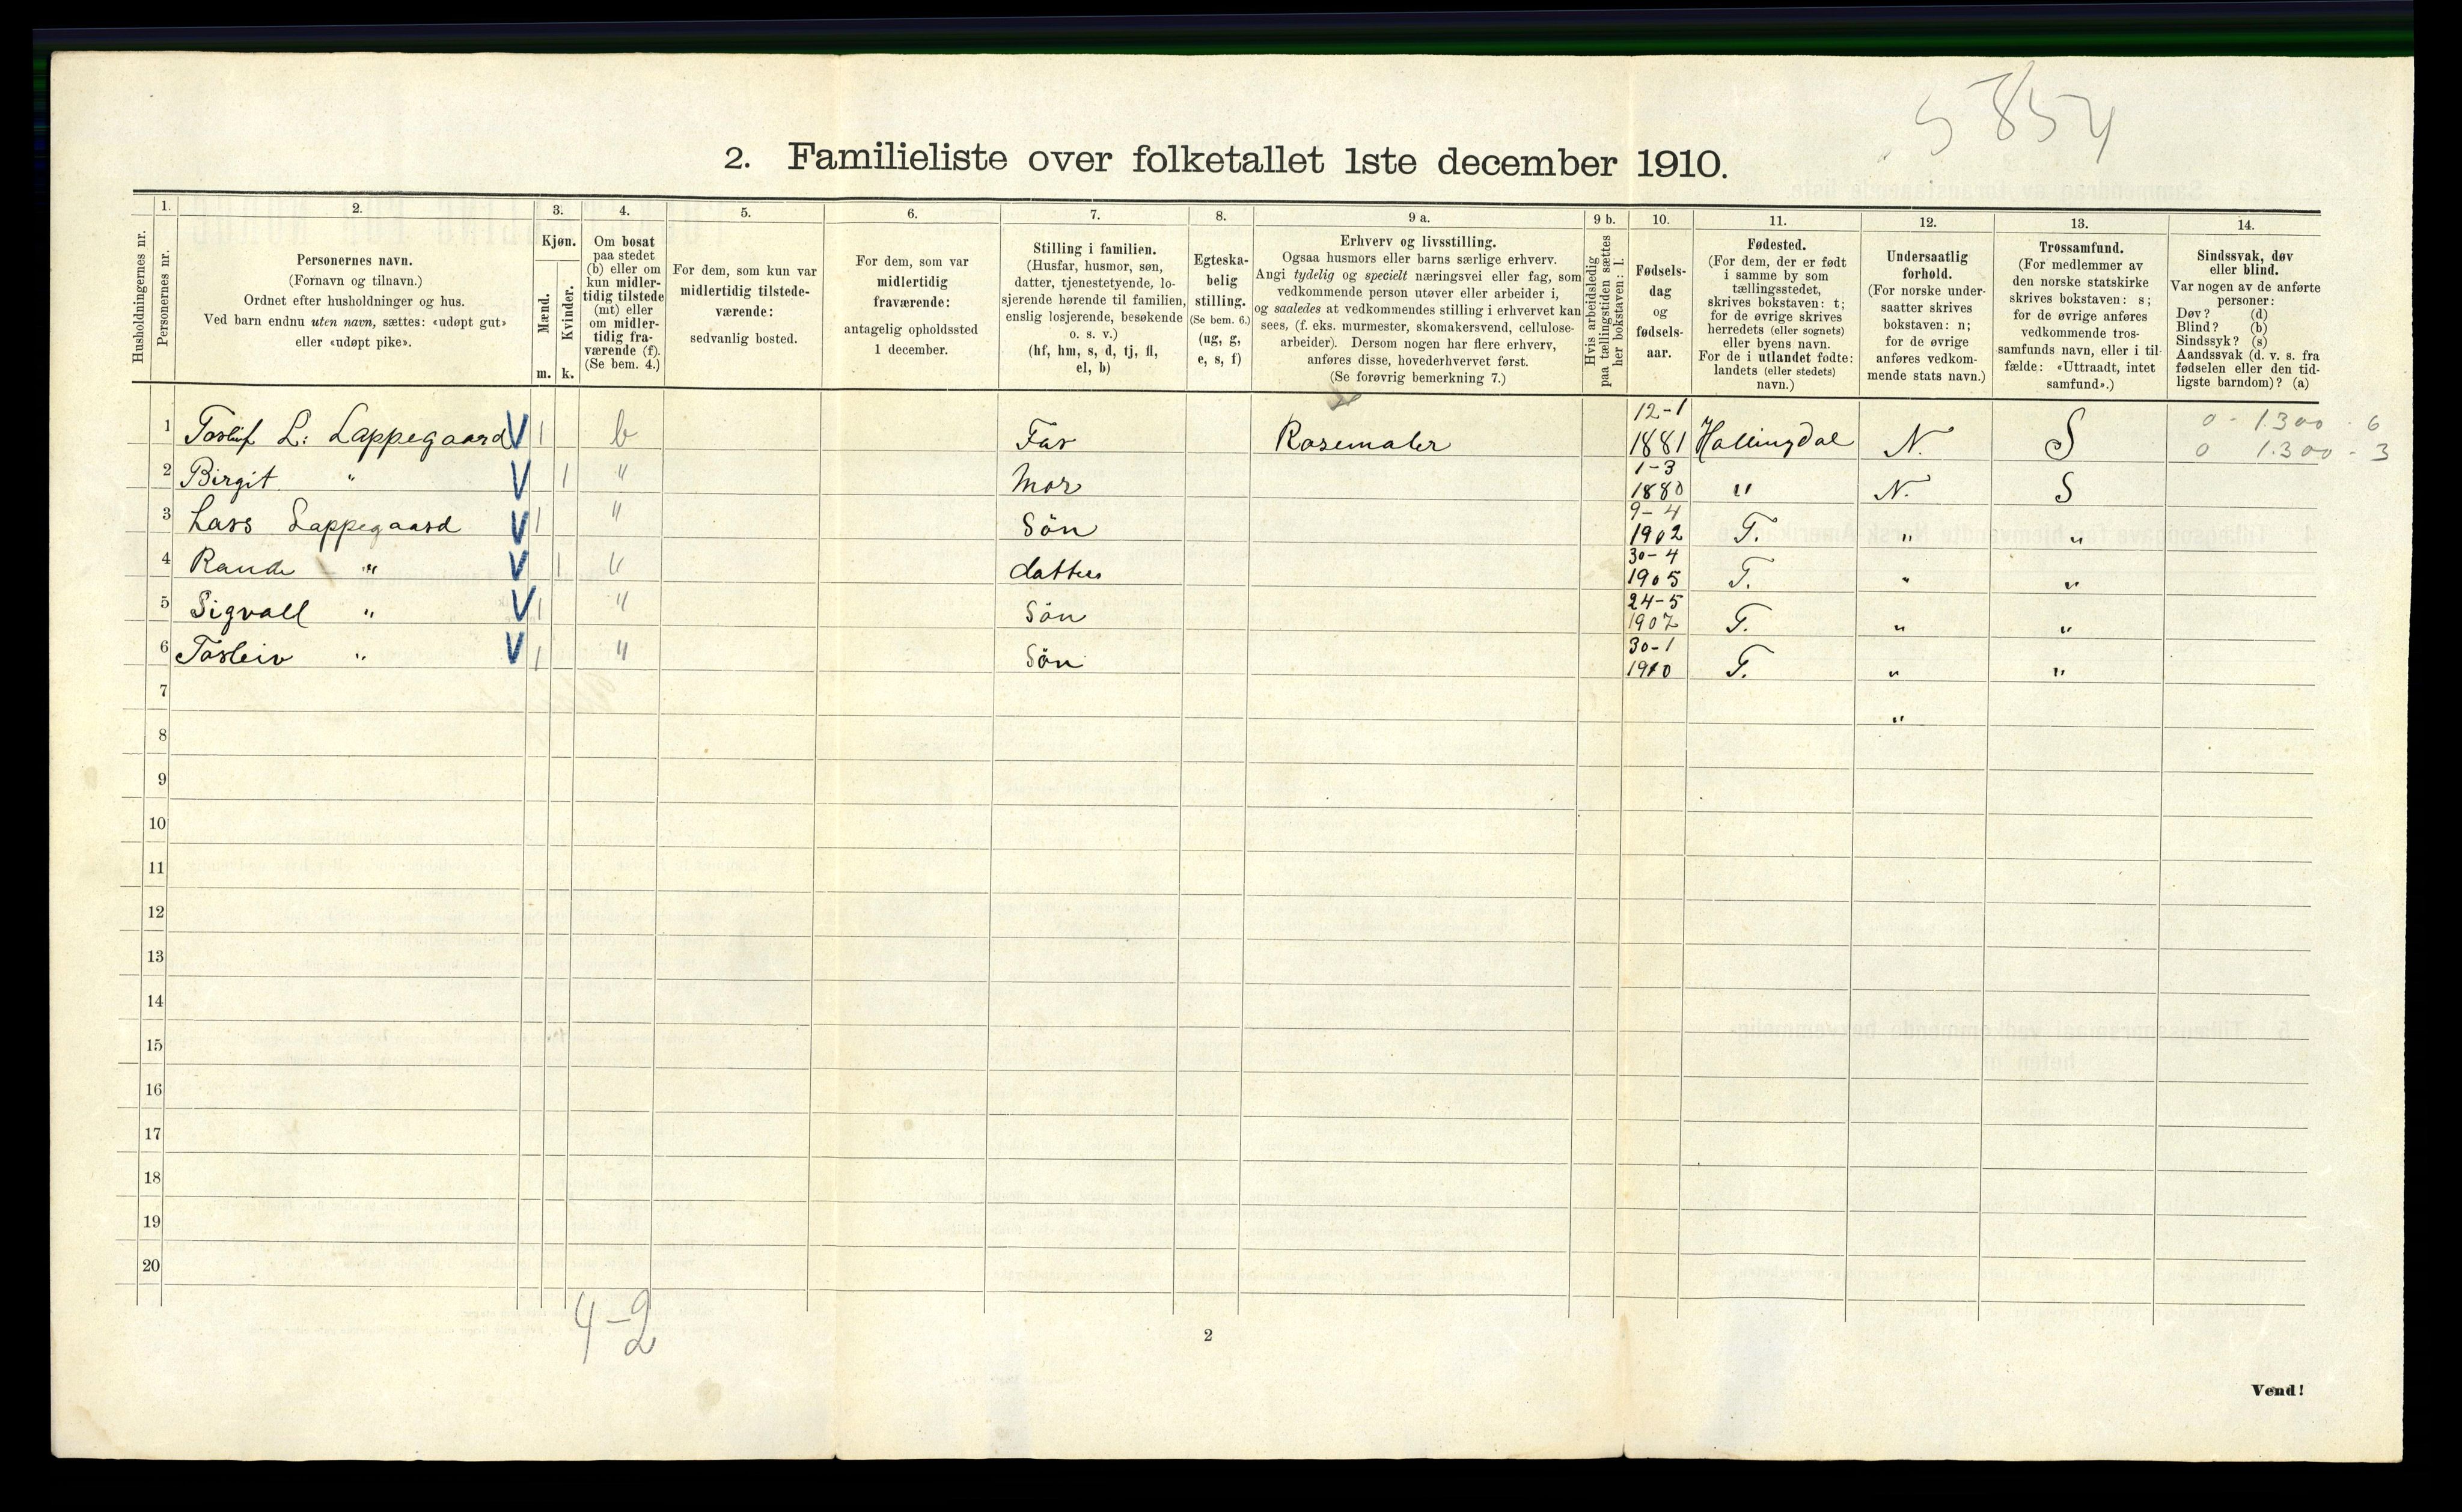 5854
2. Familieliste over folketallet 1ste december 1910.
Husholdningernes nr.
1.
Personernes nr.
2.
Personernes navn.
(Fornavn og tilnavn.)
Ordnet efter husholdninger og hus.
Ved barn endnu uten navn, sættes: «udøpt gut»
eller «udøpt pike».
3.
Kjøn.
Mænd.
Kvinder.
m. k.
4.
Om bosat
paa stedet
(b) eller om
kun midler-
tidig tilstede
(mt) eller
om midler-
tidig fra-
værende (f).
(Se bem. 4.)
5.
For dem, som kun var
midlertidig tilstede-
værende:
sedvanlig bosted.
6.
For dem, som var
midlertidig
fraværende:
antagelig opholdssted
1 december.
7.
Stilling i familien.
(Husfar, husmor, søn,
datter, tjenestetyende, lo-
sjerende hørende til familien,
enslig losjerende, besøkende
o. s. v.)
(hf, hm, s, d, tj, fl,
el, b)
8.
Egteska-
belig
stilling.
(Se bem. 6.)
(ug, g,
e, s, f)
9 a.
Erhverv og livsstilling.
Ogsaa husmors eller barns særlige erhverv.
Angi tydelig og specielt næringsvei eller fag, som
vedkommende person utøver eller arbeider i,
og saaledes at vedkommendes stilling i erhvervet kan
sees, (f. eks. murmester, skomakersvend, cellulose-
arbeider). Dersom nogen har flere erhverv,
anføres disse, hovederhvervet først.
(Se forøvrig bemerkning 7.)
9 b.
Hvis arbeidsledig
paa tællingstiden sættes
her bokstaven: l.
10.
Fødsels-
dag
og
fødsels-
aar.
11.
Fødested.
(For dem, der er født
i samme by som
tællingsstedet,
skrives bokstaven: t;
for de øvrige skrives
herredets (eller sognets)
eller byens navn.
For de i utlandet fødte:
landets (eller stedets)
navn.)
12.
Undersaatlig
forhold.
(For norske under-
saatter skrives
bokstaven: n;
for de øvrige
anføres vedkom-
mende stats navn.)
13.
Trossamfund.
(For medlemmer av
den norske statskirke
skrives bokstaven: s;
for de øvrige anføres
vedkommende tros-
samfunds navn, eller i til-
fælde: «Uttraadt, intet
samfund».)
14.
Sindssvak, døv
eller blind.
Var nogen av de anførte
personer:
Døv? (d)
Blind? (b)
Sindssyk? (s)
Aandssvak (d. v. s. fra
fødselen eller den tid-
ligste barndom)? (a)
1 L: Lappegaard V 1 b Far Rosemaler 12-1 1881 Hallingdal N. S 0 - 1.300 - 6
0 1.300 - 3
2 Birgit " V 1 " Mor 1-3 1880 " N. S
3 Lars Lappegaard V 1 " Sön 9-4 1902 T. " "
4 Rande " V 1 " datter 30-4 1905 T. " "
5 Sigvall " V 1 " Sön 24-5 1907 T. " "
6 Torleiv " V 1 " Sön 30-1 1910 T. " "
7 "
8
9
10
11
12
13
14
15
16
17
18
19
20
4-2
2
Vend!